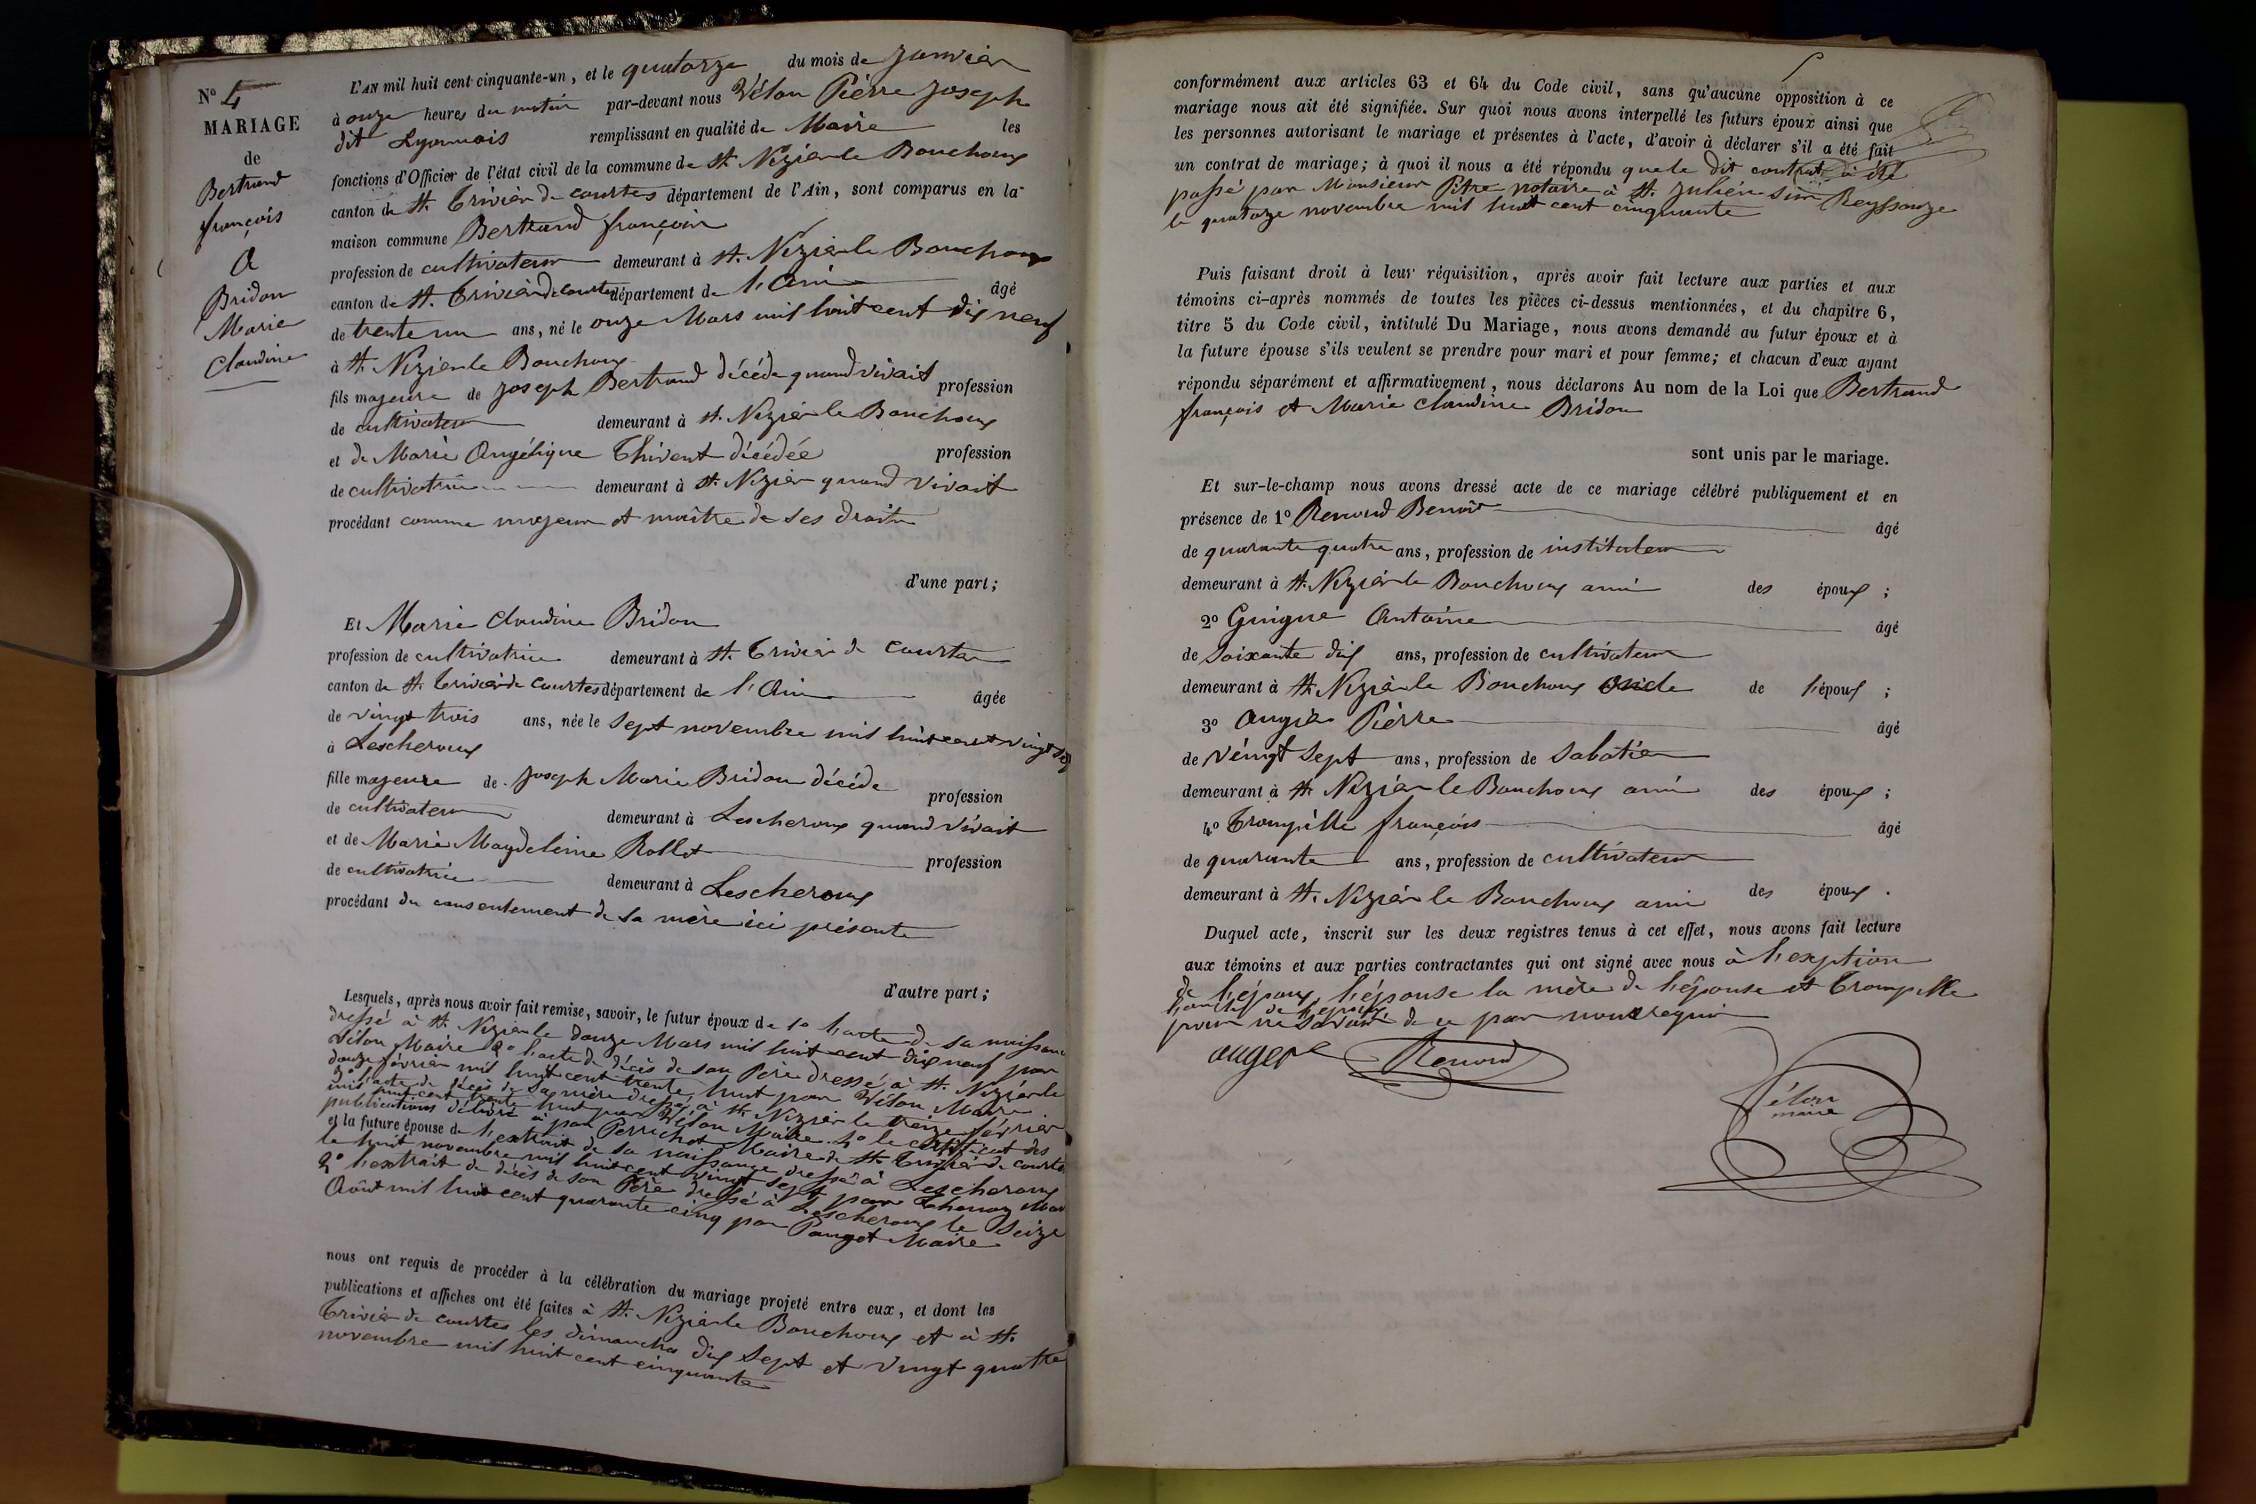 N° 4
MARIAGE
de
Bertrand
françois
&
Bridon
Marie
Claudine
L'AN mil huit cent cinquante-un, et le quatorze du mois de Janvier
à onze heures du matin par-devant nous Vélon Pierre Joseph
dit Lyonnais remplissant en qualité de Maire les
fonctions d'Officier de l'état civil de la commune de St. Nizier le Bouchoux
canton de St. Trivier de courtes département de l'Ain, sont comparus en la
maison commune Bertrand françois
profession de cultivateur demeurant à St. Nizier le Bouchoux
canton de St. Trivier de courtes département de l'Ain âgé
de trente un ans, né le onze Mars mil huit cent dix neuf
à St. Nizier le Bouchoux
fils majeure de Joseph Bertrand décédé quand vivait profession
de cultivateur demeurant à St. Nizier le Bouchoux
et de Marie Angélique Thivent décédée profession
de cultivatrice demeurant à St. Nizier quand vivait
procédant comme majeur et maître de ses droits
d'une part;
Et Marie Claudine Bridon
profession de cultivatrice demeurant à St. Trivier de Courtes
canton de St. Trivier de Courtes département de l'Ain âgée
de vingt trois ans, née le sept novembre mil huit cent vingt sept
à Lescheroux
fille majeure de Joseph Marie Bridon décédé profession
de cultivateur demeurant à Lescheroux quand vivait
et de Marie Magdeleine Rollet profession
de cultivatrice demeurant à Lescheroux
procédant du consentement de sa mère ici présente
d'autre part;
Lesquels, après nous avoir fait remise, savoir, le futur époux de 1° l'acte de sa naissance
dressé à St. Nizier le douze Mars mil huit cent dix neuf par
Vélon Maire 2° l'acte de décès de son Père dressé à St. Nizier le
douze février mil huit cent trente huit par Vélon Maire
3° l'acte de décès de sa mère dressé à St Nizier le treize février
mil huit cent trente huit par Vélon Maire. 4° le certificat des
publications délivré par Perrichot Maire de St. Trivier de courtes
et la future épouse de l'extrait de sa naissance dressé à Lescheroux
le huit novembre mil huit cent vingt sept par Maire
2° l'extrait de décès de son Père dressé à Lescheroux le seize
Août mil huit cent quarante cinq par Pauget Maire
nous ont requis de procéder à la célébration du mariage projeté entre eux, et dont les
publications et affiches ont été faites à St. Nizier le Bouchoux et à St.
Trivier de courtes les dimanches dix sept et vingt quatre
novembre mil huit cent cinquante
conformément aux articles 63 et 64 du Code civil, sans qu'aucune opposition à ce
mariage nous ait été signifiée. Sur quoi nous avons interpellé les futurs époux ainsi que
les personnes autorisant le mariage et présentes à l'acte, d'avoir à déclarer s'il a été fait
un contrat de mariage; à quoi il nous a été répondu que le dit contrat a été
passé par Monsieur Pitre notaire à St. Julien sur Reyssouze
le quatoze novembre mil huit cent cinquante
Puis faisant droit à leur réquisition, après avoir fait lecture aux parties et aux
témoins ci-après nommés de toutes les pièces ci-dessus mentionnées, et du chapitre 6,
titre 5 du Code civil, intitulé Du Mariage, nous avons demandé au futur époux et à
la future épouse s'ils veulent se prendre pour mari et pour femme; et chacun d'eux ayant
répondu séparément et affirmativement, nous déclarons Au nom de la Loi que Bertrand
françois et Marie Claudine Bridon
sont unis par le mariage.
Et sur-le-champ nous avons dressé acte de ce mariage célébré publiquement et en
présence de 1° Renoud Benoit âgé
de quarante quatre ans, profession de instituteur
demeurant à St. Nizier le Bouchoux ami des époux;
2° Guigue Antoine âgé
de soixante dix ans, profession de cultivateur
demeurant à St. Nizier le Bouchoux oncle de l'époux;
3° Augier Pierre âgé
de vingt sept ans, profession de sabotier
demeurant à St. Nizier le Bouchoux ami des époux;
4° Trompille françois âgé
de quarante ans, profession de cultivateur
demeurant à St. Nizier le Bouchoux ami des époux.
Duquel acte, inscrit sur les deux registres tenus à cet effet, nous avons fait lecture
aux témoins et aux parties contractantes qui ont signé avec nous à l'exption
de l'époux, l'épouse la mère de l'épouse et Trompille
l'oncle de l'époux
pour ne savoir de ce par nous requis
auger Renoud
Vélon
maire